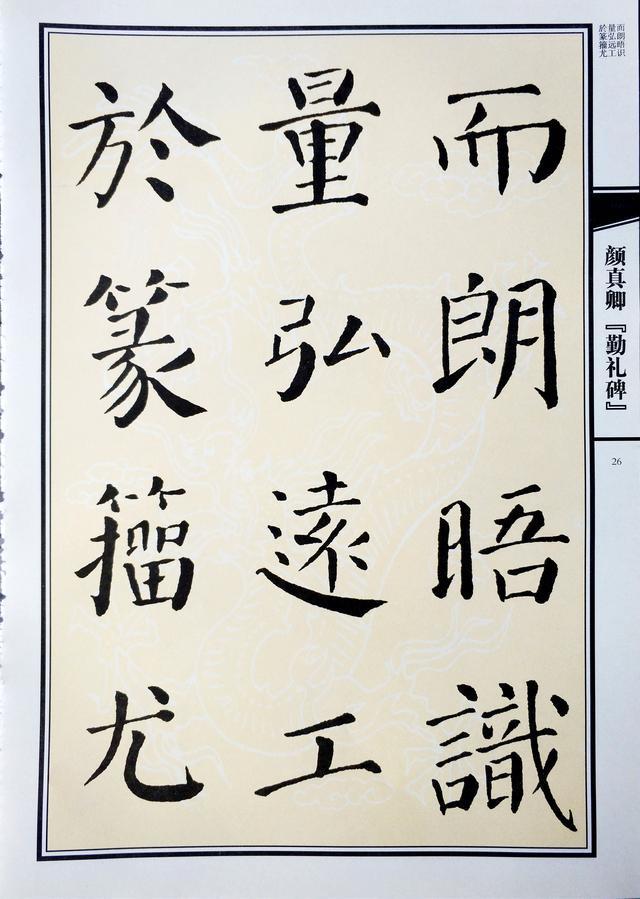 而朗晤識
量弘遠工
於篆籀尤
而朗晤识
量弘远工
於篆籀尤
颜真卿『勤礼碑』
26